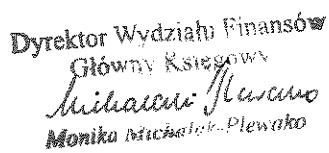 Dyrektor Wydziału Finansów
Główny Księgowy
Monika Michałek-Plewako